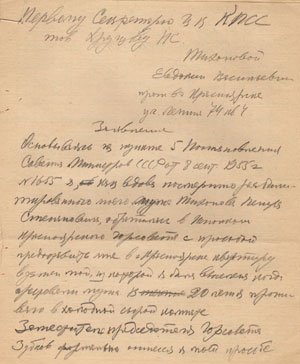 Первому Секретарю ЦК КПСС
тов Хрущеву НС
Тихоновой
Евдокии Васильевны
прож в Красноярске
ул Ленина 74 кв 4
Заявление
Основываясь на пункте 5 Постановления
Совета Министров СССР от 8 сент 1955 г
№ 1655 я, вдова посмертно реабили-
тированного моего мужа Тихонова
Степановича, обратилась в
Красноярского Горсовета с просьбой
предоставить мне в Красноярске квартиру
взамен той, из которой я была выселена после
мужа и 20 летия прожи
ваю в холодной сырой
Заместитель председателя Горсовета
Зубков формально отнесся к моей просьбе